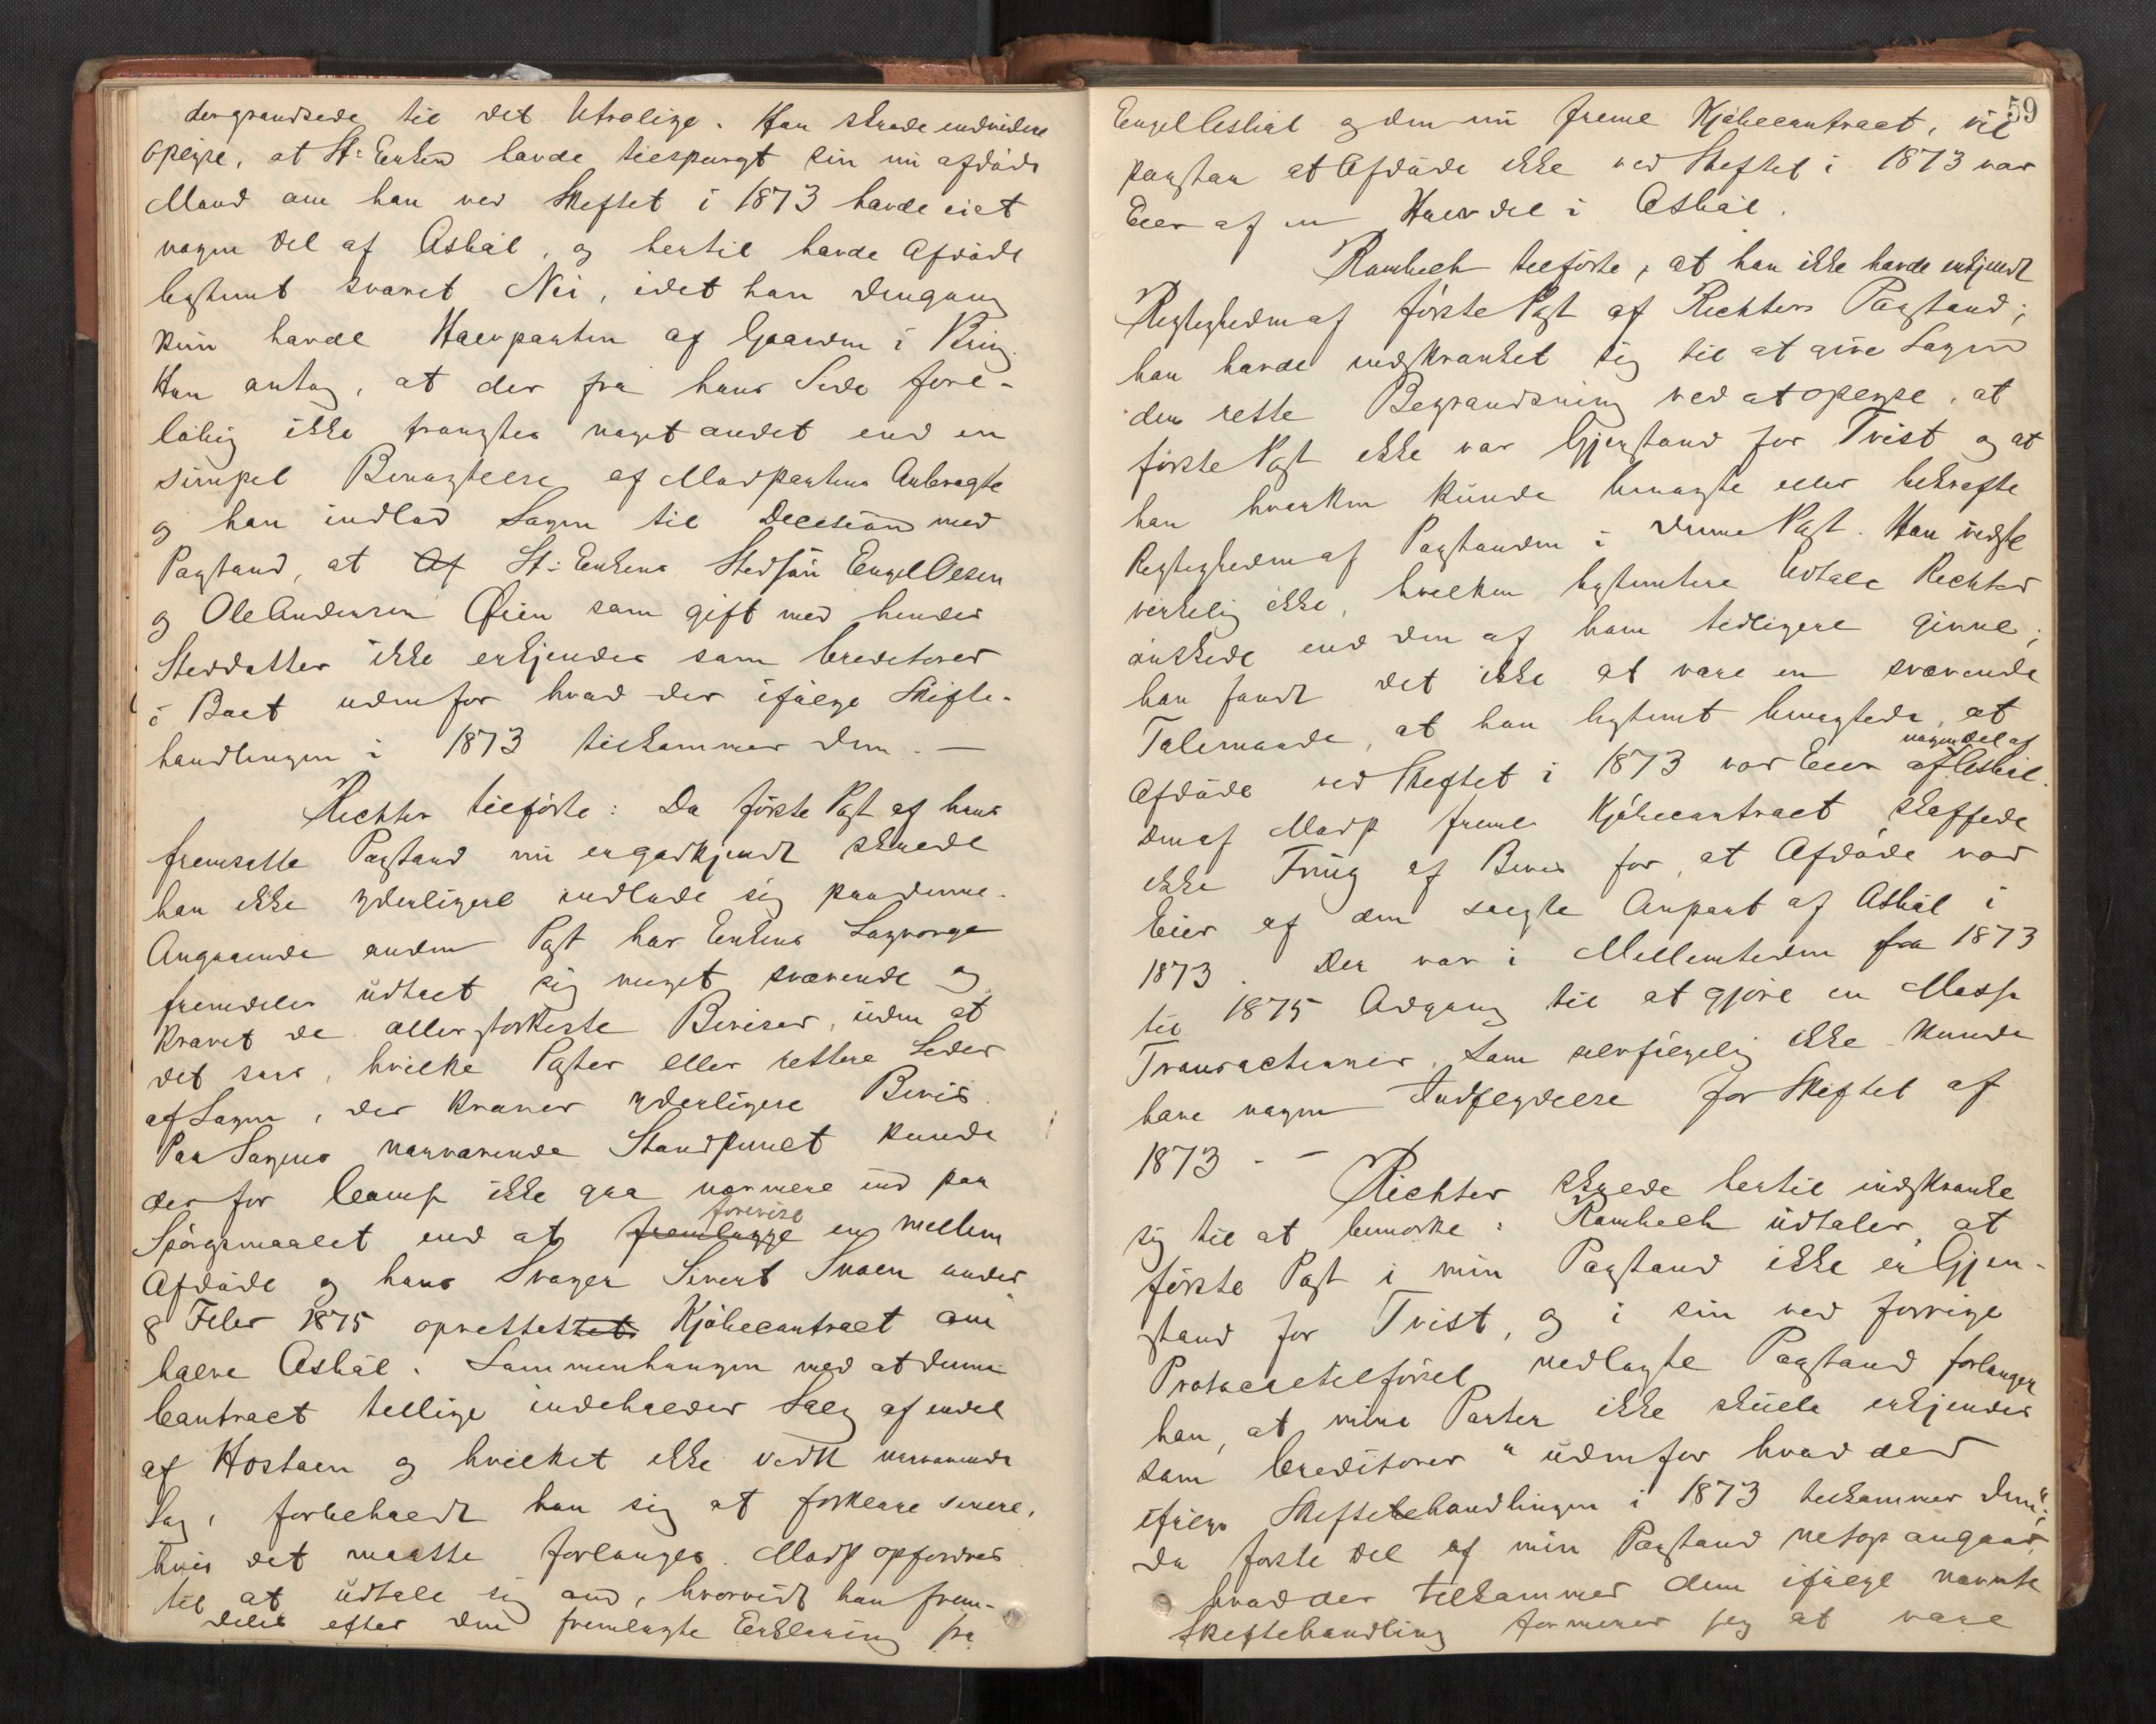 dergrændsede til det Utrolige. Han skulde endvidere
oplyse, at St: Enken havde tilspurgt sin nu afdøde
Mand om han ved Skiftet i 1873 havde eiet
nogen Del af Asbøl, og hertil havde Afdøde
bestemt svaret Nei, idet han dengang
kun havde Halvparten af Gaarden i
Han antog, at der fra hans Side fore-
løbig ikke trængtes noget andet end en
simpel Benægtelse af Modpartens Anbragte
og han indlod Sagen til Decision med
Paastand, at Af St: Enkens Stedsøn Engel Olsen
og Ole Andersen Øien som gift med hendes
Steddatter ikke erkjendes som Creditorer
i Boet udenfor hvad der ifølge Skifte-
handlingen i 1873 tilkommer dem. —
Richter tilførte: Da første Post af hans
fremsatte Paastand nu er godkjendt skulde
han ikke yderligere indlade sig paa denne.
Angaaende anden Post har Enkens Lagværge
fremdeles udtalt sig meget svævende og
krævet de allerstærkeste Beviser, uden at
det sees, hvilke Poster eller rettere Sider
af Sagen, der kræver yderligere Bevis.
Paa Sagens nærværende Standpunct kunde
der for Comp ikke gaa nærmere ind paa
forevise
Spørgsmaalet end at fremlægge en mellem
Afdøde og hans Svoger Sivert Svaen under
8 Febr 1875 oprettettet Kjøbecontract om
halve Asbøl. Sammenhængen med at denne
Contract tillige indeholder Salg af endel
af Hostaen og hvilket ikke vedk nærværende
Sag, forbeholdt han sig at forklare senere,
hvis det maatte forlanges. Modp opfordres
til at udtale sig om, hvorvidt han frem-
deles efter den fremlagte Erklæring fra
59
Engel Asbøl og den nu fremlagte Kjøbecontract, vil
paastaa at Afdøde ikke ved Skiftet i 1873 var
Eier af en Halvdel i Asbøl.
Rambech tilførte, at han ikke havde erkjendt
Rigtigheden af første Post af Richters Paastand;
han havde indskrænket sig til at give Sagen
den rette Begrændsning ved at oplyse, at
første Post ikke var Gjenstand for Tvist og at
han hverken kunde benægte eller bekræfte
Rigtigheden af Paastanden i denne Post. Han vidste
virkelig ikke, hvilken bestemtere Udtale Richter
ønskede end den af ham tidligere givne;
han fandt det ikke at være en svævende
Talemaade, at han bestemt benægtede, at
nogen Del af
Afdøde ved Skiftet i 1873 var Eier af Asbøl.
Den af Modp fremlagte Kjøbecontract skaffede
ikke Fnug af Bevis for, at Afdøde var
Eier af den solgte Anpart af Asbøl i
1873. Der var i Mellemtiden fra 1873
til 1875 Adgang til at gjøre en Masse
Transactioner, som selvfølgelig ikke kunde
have nogen Indflydelse for Skiftet af
1873 - -
Richter skulde hertil indskrænke
sig til at bemærke: Rambech udtaler, at
første Post i min Paastand ikke er Gjen-
stand for Tvist, og i sin ved forrige
Protocoltilførsel nedlagte Paastand forlanger
han, at mine Parter ikke skulle erkjendes
som Creditorer "udenfor hvad der
ifølge Skiftebehandlingen i 1873 tilkommer dem";
da første Del af min Paastand netop angaar,
hvad der tilkommer dem ifølge nævnte
Skiftebehandling formener jeg at være